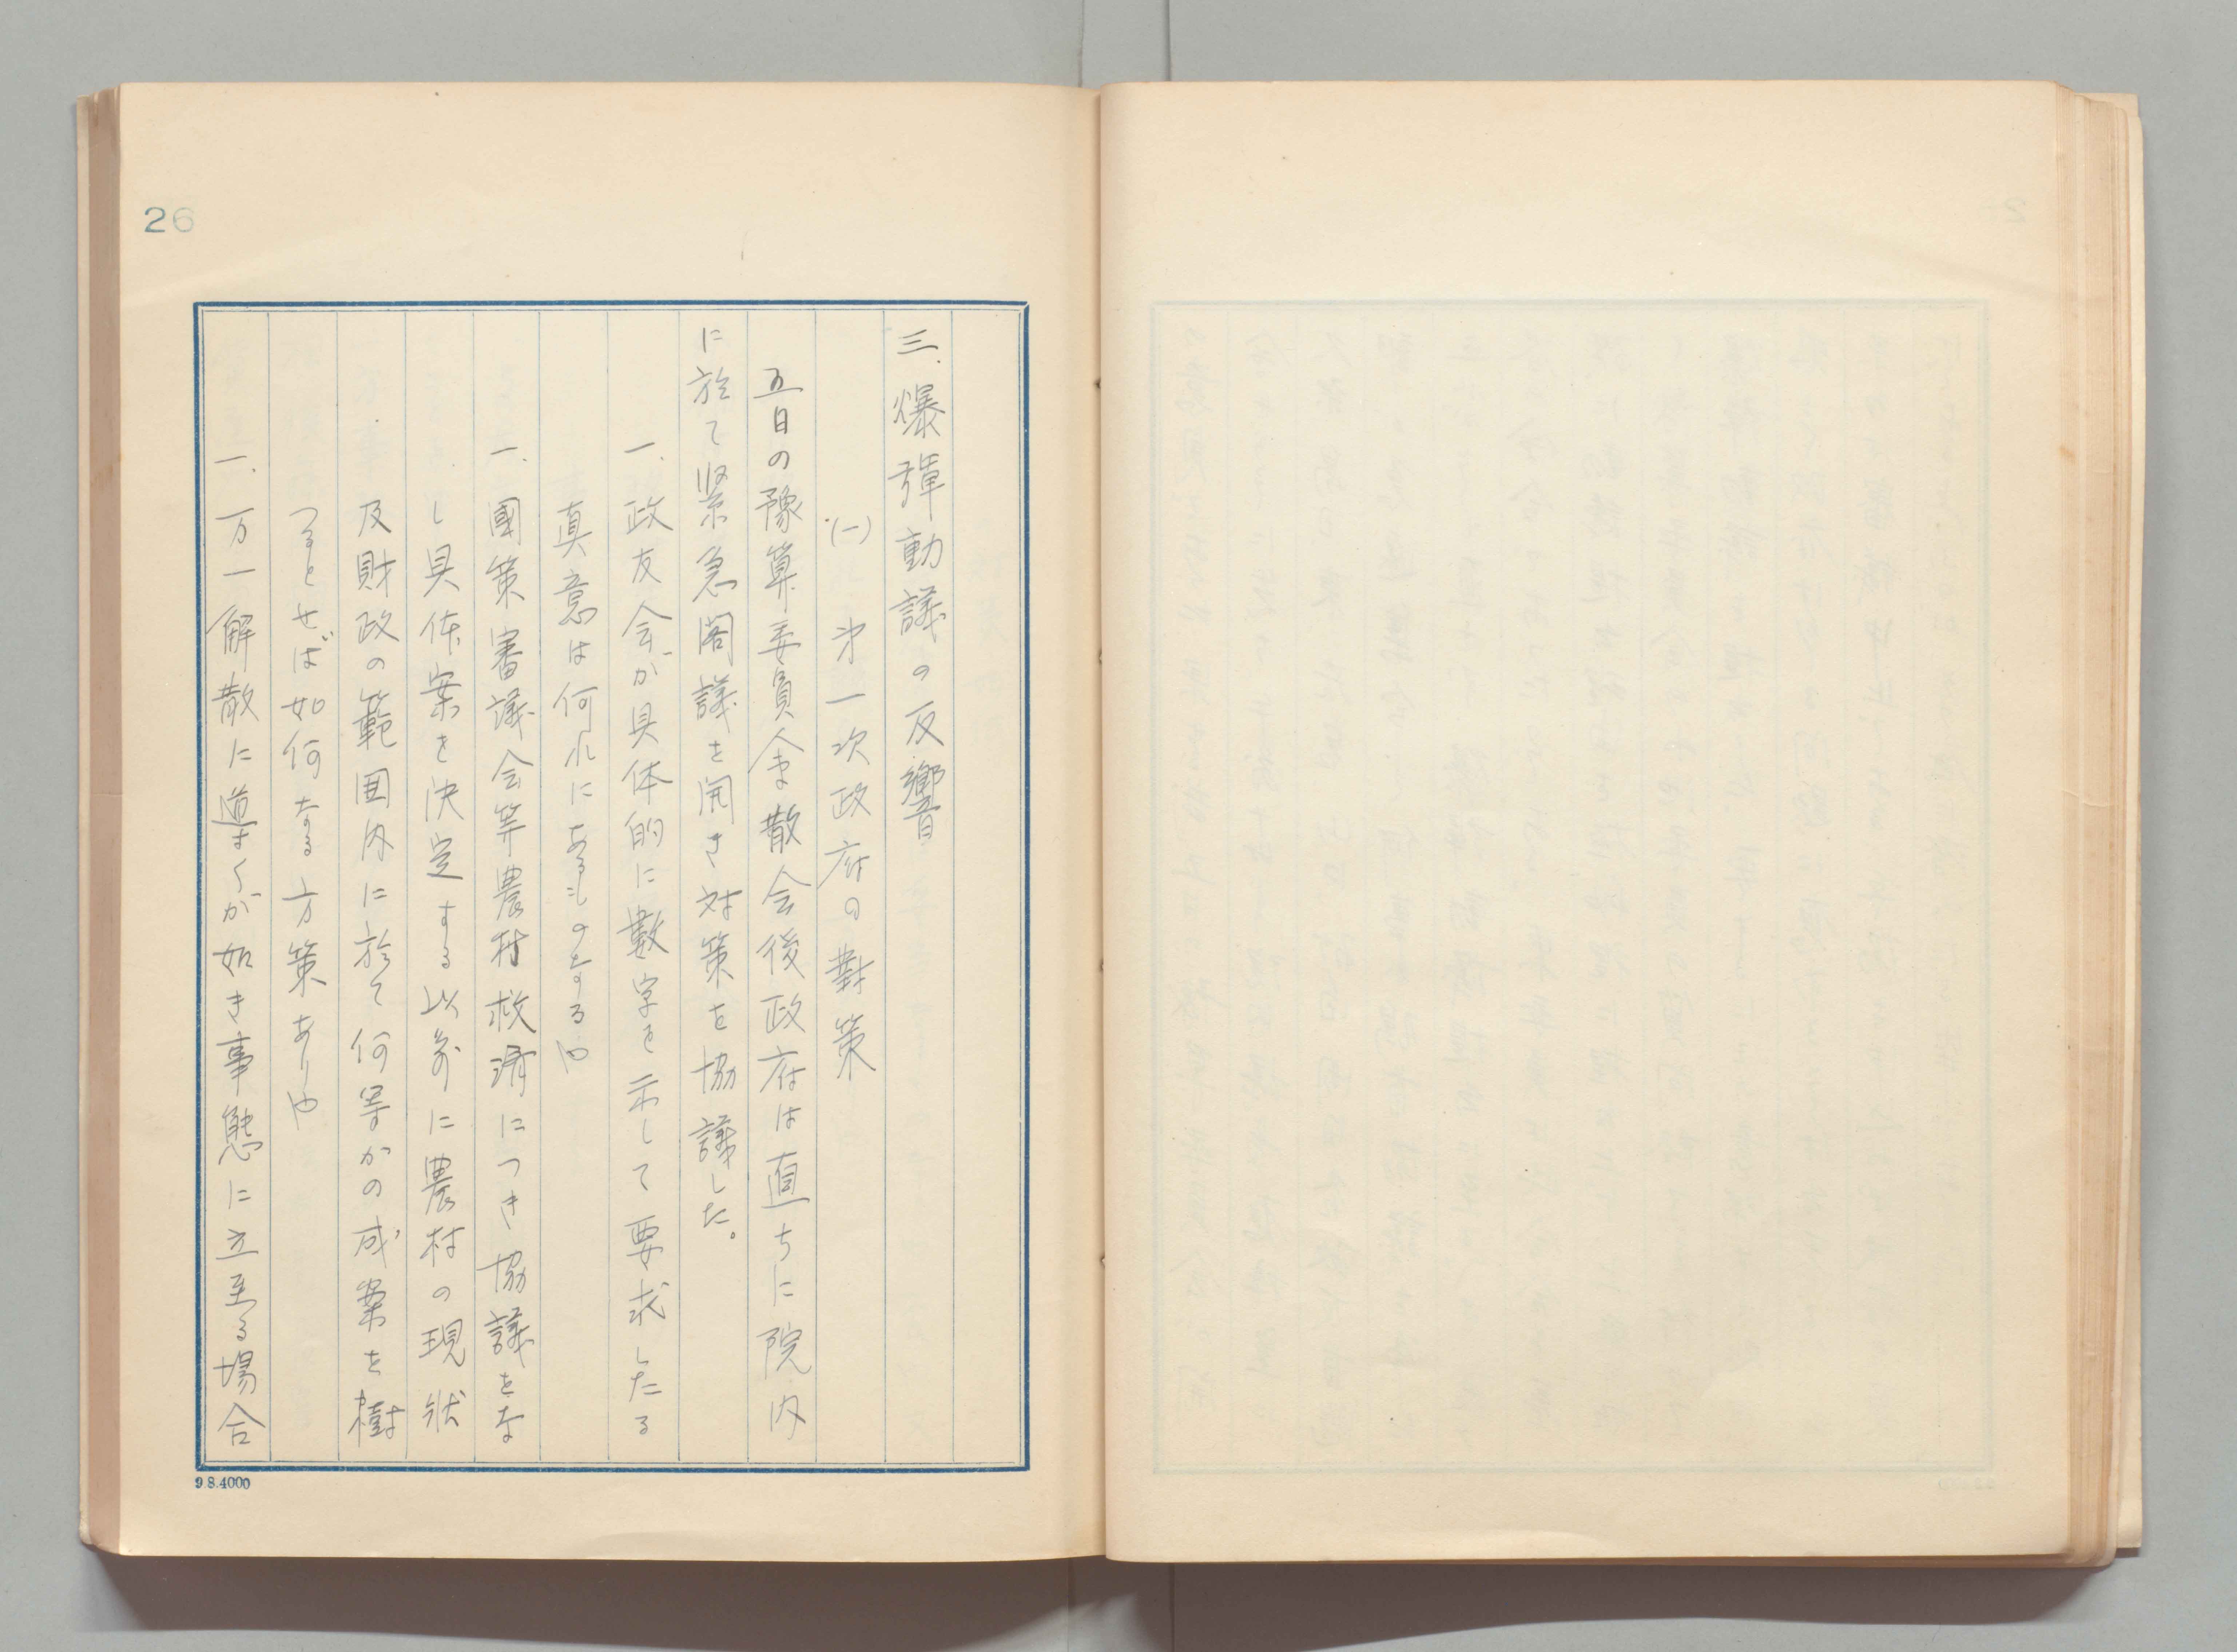 26
三、爆弾動議の反響
(一) 第一次政府の對策
五日の豫算委員会散会後政府は直ちに院内
に於て緊急閣議を開き対策を協議した。
一、政友会が具体的に數字を示して要求したる
真意は何れにあるものなるや
一、國策審議会等農村救済につき協議をな
し具体案を決定する以前に農村の現状
及財政の範囲内に於て何等かの成案を樹
つるとせば如何なる方策ありや
一、万一解散に導くが如き事態に立至る場合
9.8.4000